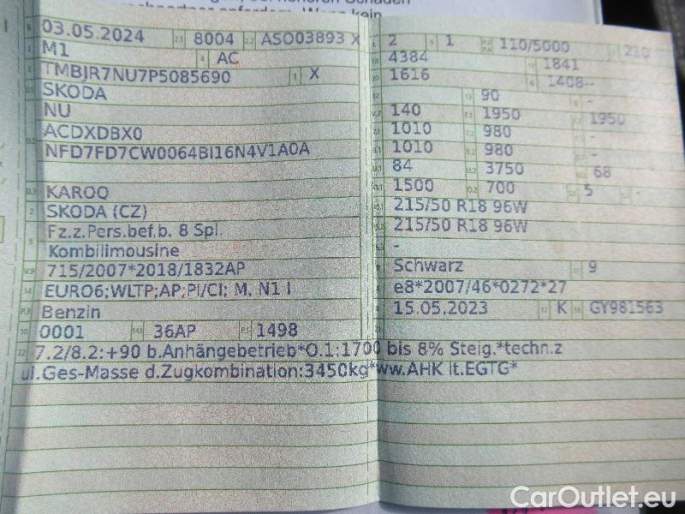 03.05.2024 8004 ASO03893 X
M1 AC
TMBJR7NU7P5085690 X
SKODA
NU
ACDXDBX0
NFD7FD7CW0064BI16N4V1A0A
KAROQ
SKODA (CZ)
Fz.z.Pers.bef.b. 8 Spl.
Kombilimousine
715/2007*2018/1832AP
EURO6;WLTP;AP;PI/CI; M, N1 I
Benzin
0001 36AP 1498
2 1 110/5000 210
4384 1841
1616 1408--
90 -
140 1950 1950
1010 980 -
1010 980 -
84 3750 68
1500 700 5 -
215/50 R18 96W
215/50 R18 96W
-
Schwarz 9
e8*2007/46*0272*27
15.05.2023 K GY981563
7.2/8.2:+90 b.Anhängebetrieb*O.1:1700 bis 8% Steig.*techn.z
ul.Ges-Masse d.Zugkombination:3450kg*ww.AHK lt.EGTG*
CarOutlet.eu